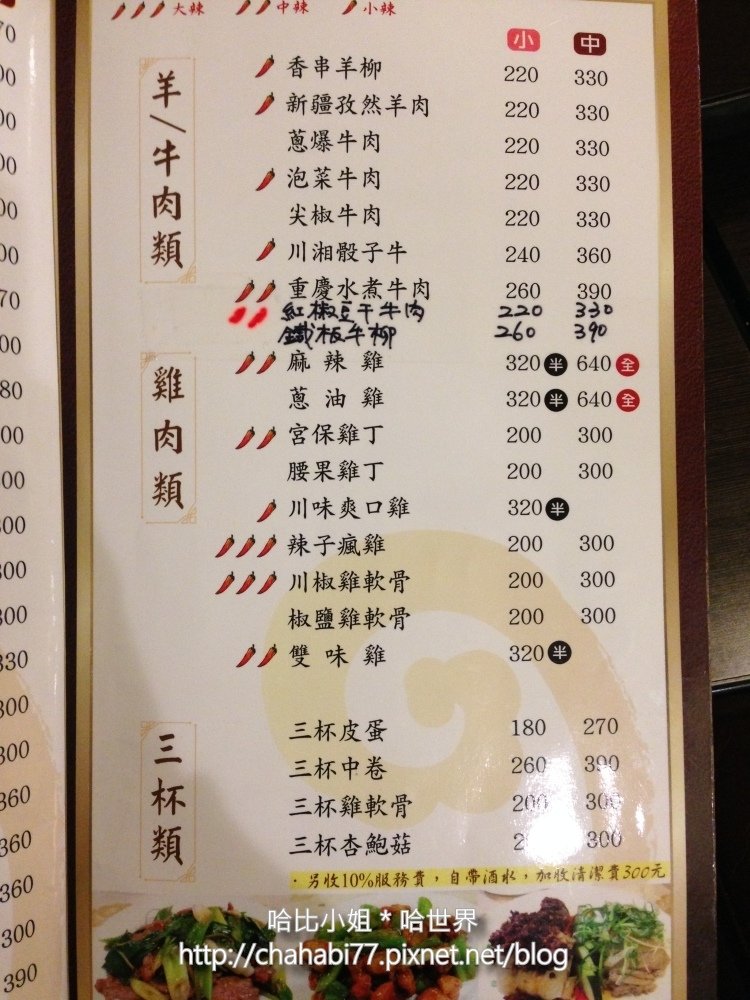 大辣 中辣 小辣
小 中
羊/牛肉類
香串羊柳 220 330
新疆孜然羊肉 220 330
蔥爆牛肉 220 330
泡菜牛肉 220 330
尖椒牛肉 220 330
川湘骰子牛 240 360
重慶水煮牛肉 260 390
紅椒豆干牛肉 220 330
鐵板牛柳 260 390
雞肉類
麻辣雞 320 半 640 全
蔥油雞 320 半 640 全
宮保雞丁 200 300
腰果雞丁 200 300
川味爽口雞 320 半
辣子瘋雞 200 300
川椒雞軟骨 200 300
椒鹽雞軟骨 200 300
雙味雞 320 半
三杯類
三杯皮蛋 180 270
三杯中卷 260 390
三杯雞軟骨 200 300
三杯杏鮑菇 300
·另收10%服務費，自帶酒水，加收清潔費300元
哈比小姐 * 哈世界
http://chahabi77.pixnet.net/blog